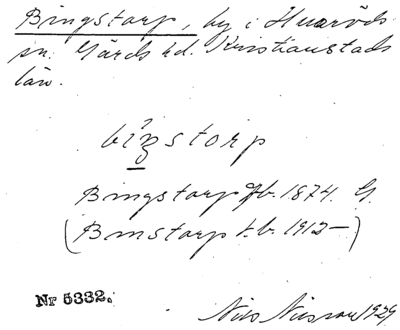 Bingstorp, by i Huaröds
sn. Gärds hd. Kristianstads
län.
bi²ŋstorp
Bingstorp Jb. 1874. G.
(Binstorp t.b. 1912–)
Nr 5332.
Nils Nilsson 1929